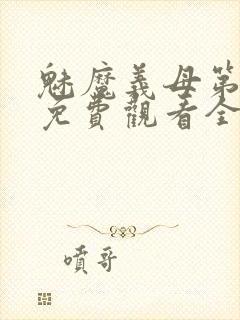 魅魔義母第
免費觀看全
噴哥